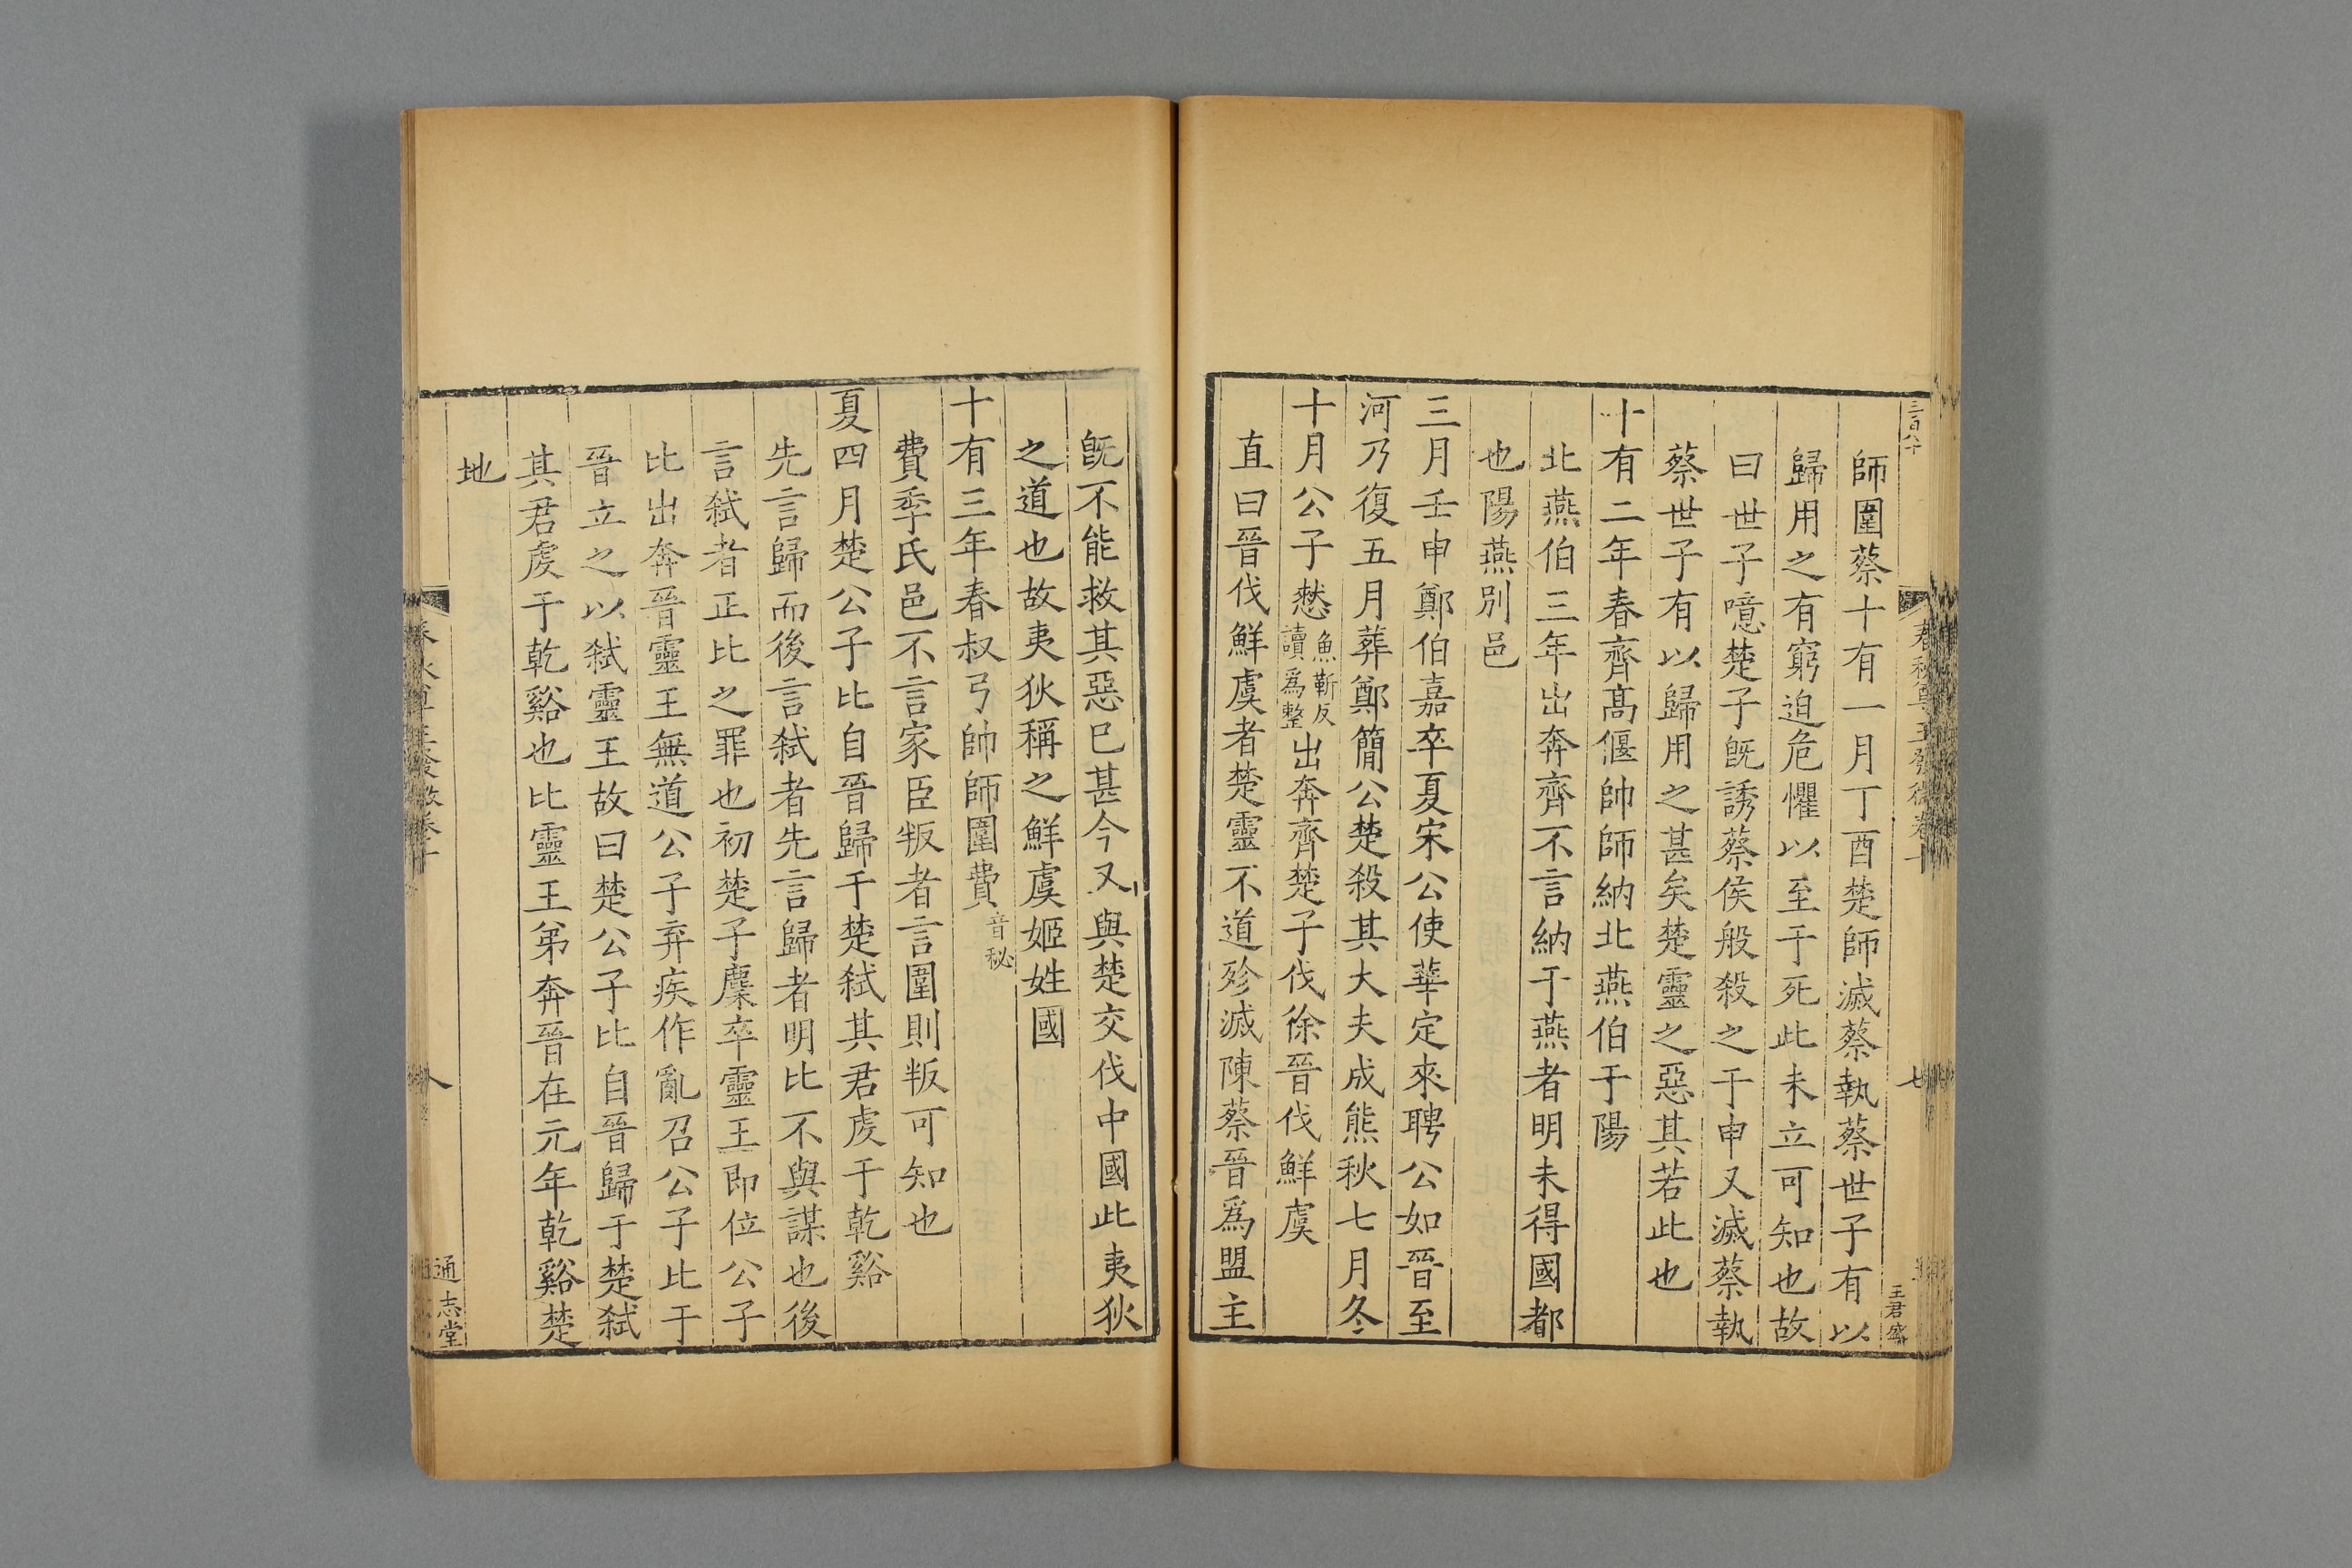 三百八十
春秋尊王發微卷十
七
王君盛
師圍蔡十有一月丁酉楚師滅蔡執蔡世子有以
歸用之有窮迫危懼以至于死此未立可知也故
曰世子噫楚子旣誘蔡侯般殺之于申又滅蔡執
蔡世子有以歸用之甚矣楚靈之惡其若此也
十有二年春齊高偃帥師納北燕伯于陽
北燕伯三年出奔齊不言納于燕者明未得國都
也陽燕別邑
三月壬申鄭伯嘉卒夏宋公使華定來聘公如晉至
河乃復五月葬鄭簡公楚殺其大夫成熊秋七月冬
十月公子憖魚靳反讀爲整出奔齊楚子伐徐晉伐鮮虞
直曰晉伐鮮虞者楚靈不道殄滅陳蔡晉爲盟主
旣不能救其惡已甚今又與楚交伐中國此夷狄
之道也故夷狄稱之鮮虞姬姓國
十有三年春叔弓帥師圍費音秘
費季氏邑不言家臣叛者言圍則叛可知也
夏四月楚公子比自晉歸于楚弑其君虔于乾谿
先言歸而後言弑者先言歸者明比不與謀也後
言弑者正比之罪也初楚子麇卒靈王即位公子
比出奔晉靈王無道公子弃疾作亂召公子比于
晉立之以弑靈王故曰楚公子比自晉歸于楚弑
其君虔于乾谿也比靈王弟奔晉在元年乾谿楚
地
春秋尊王發微卷十
八
通志堂